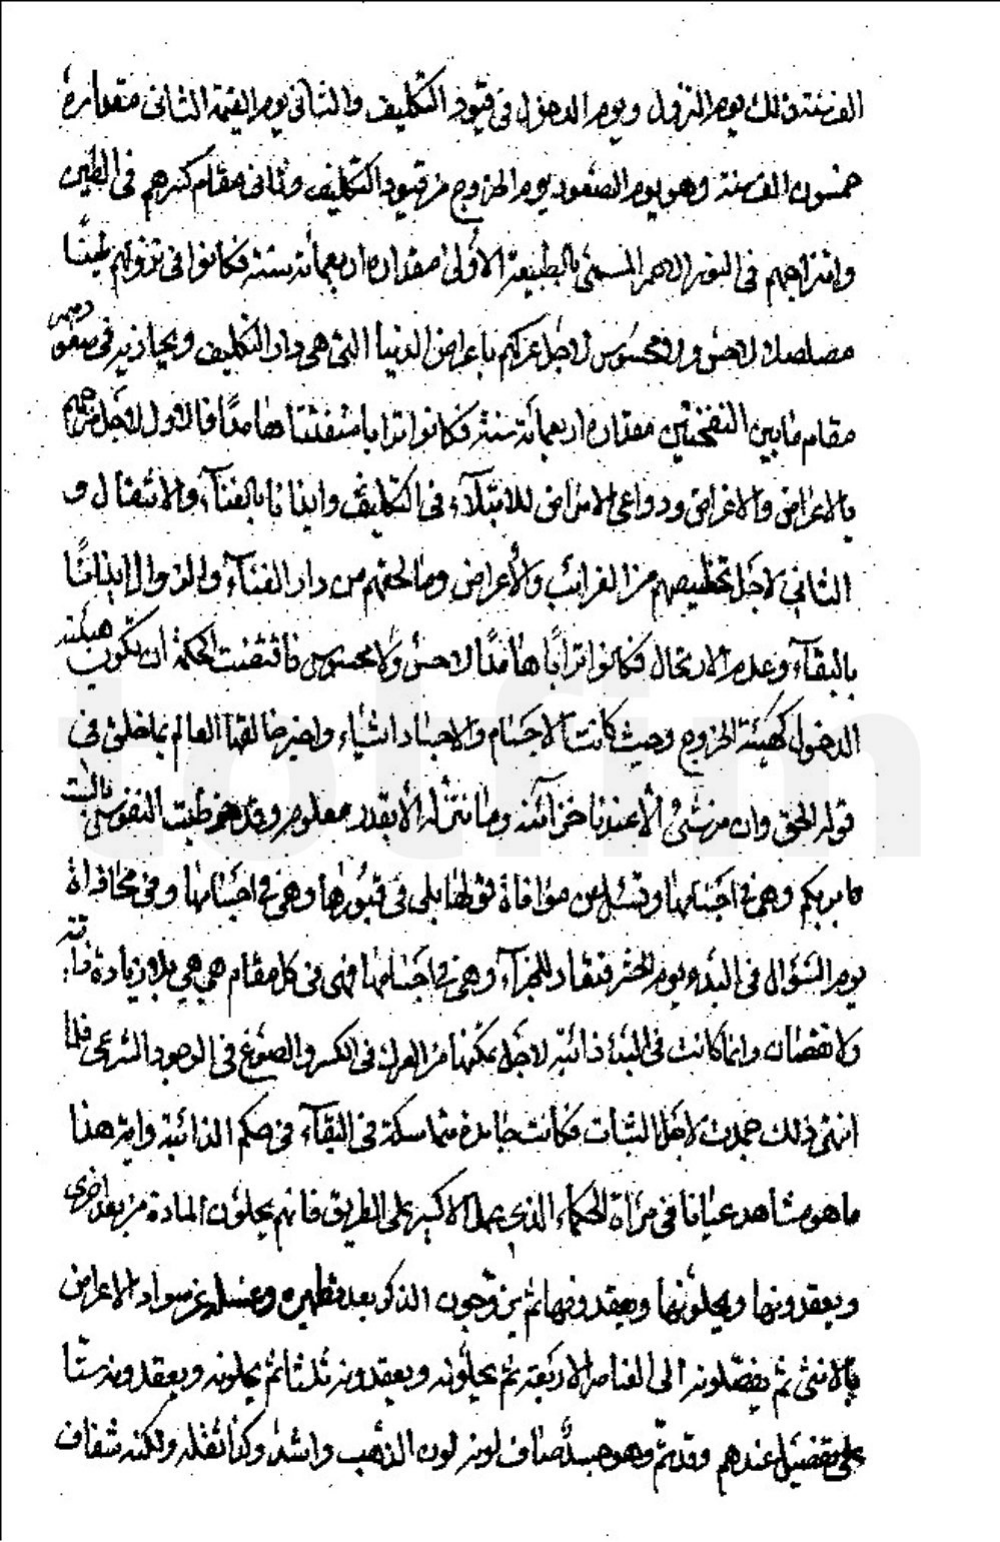 الف سنة وذلك يوم النزول ويوم الدخول فى قيود التكليف والثانى يوم القيمة الثانى مقداره
خمسون الف سنة وهو يوم الصعود يوم الخروج من قيود التكليف وثانى مقام كسرهم فى الطين
وامتزاجهم فى النور الاحمر المسمى بالطبيعة الأولى مقداره اربعمائة سنة فكانوا فى نزولهم طينًا
صلصلا لا حس ولا محسوس لاجل عركهم باعراض الدنيا التى هى دار التكليف ويحاذيه فى صعودهم
مقام مابين النفختين مقداره اربعمائة سنة فكانوا ترابا هامدًا فالاول لاجل مزجهم
بالاعراض والاغراض ودواعى الامراض للابتلاء فى التكليف وايذانا بالفنآء والانتقال و
الثانى لاجل تخليصهم من الغرائب والأعراض وما لحقهم من دار الفنآء والزوال ايذانًا
بالبقآء وعدم الارتحال فكانوا ترابًا هامدًا لا حس ولا محسوس فاقتضت الحكمة ان تكون هيئة
الدخول كهيئة الخروج وحيث كانت الاجسام والاجساد اشياء واخبر خالقها العالم بما خلق فى
قوله الحق وان من شئ الا عندنا خزائنه وما ننزله الا بقدر معلوم وقد خوطبت النفوس بالست
بربكم وهى فى اجسامها وتسئل فى قبورها وهى فى اجسامها وفى محاذاة
يوم السؤال فى البدء يوم الحشر فتعاد للجزآء وهى فى اجسامها فهى فى كل مقام هى هى بلا زيادة ذاتية
ولا نقصان وانما كانت فى البدء ذائبة لاجل تمكنها من العرك فى الكسر والصوغ فى الوجود الشرعى فلما
انتهى ذلك جمدت لاجل الثبات فكانت جامدة متماسكة فى البقآء فى حكم الذائبة واية هذا
ما هو مشاهد عيانا فى مرآة الحكماء الذى عمل الاكسير على الطريق فانهم يحلون المادة مرة بعد اخرى
ويعقدونها ويحلونها ويعقدونها ثم يزوجون الذكر بعد تطهيره وغسله عن سواد الاعراض
بالانثى ثم يفصلونه الى العناصر الاربعة ثم يحلونه ويعقدونه ثلثا ثم يحلونه ويعقدونه ستّا
على تفصيل عندهم وقد تم وهو جسد صاف لونه لون الذهب واشد وكذا ثقله ولكنه شفاف